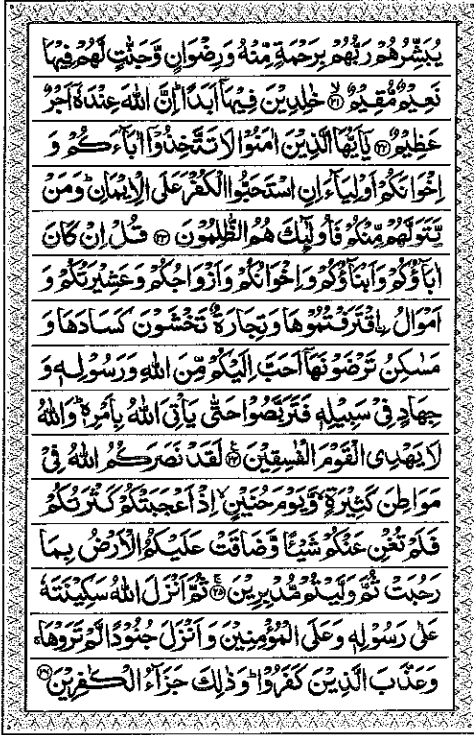 يُبَشِّرُهُمْ رَبُّهُمْ بِرَحْمَةٍ مِّنْهُ وَرِضْوَانٍ وَّجَنّٰتٍ لَّهُمْ فِيْهَا
نَعِيْمٌ مُّقِيْمٌ ۙ﴿۲۱﴾ خٰلِدِيْنَ فِيْهَاۤ اَبَدًا ؕ اِنَّ اللّٰهَ عِنْدَهٗۤ اَجْرٌ
عَظِيْمٌ ﴿۲۲﴾ يٰۤاَيُّهَا الَّذِيْنَ اٰمَنُوْا لَا تَتَّخِذُوْۤا اٰبَآءَكُمْ وَ
اِخْوَانَكُمْ اَوْلِيَآءَ اِنِ اسْتَحَبُّوا الْكُفْرَ عَلَى الْاِيْمَانِ ؕ وَمَنْ
يَّتَوَلَّهُمْ مِّنْكُمْ فَاُولٰٓئِكَ هُمُ الظّٰلِمُوْنَ ﴿۲۳﴾ قُلْ اِنْ كَانَ
اٰبَآؤُكُمْ وَاَبْنَآؤُكُمْ وَاِخْوَانُكُمْ وَاَزْوَاجُكُمْ وَعَشِيْرَتُكُمْ وَ
اَمْوَالُ ۨاقْتَرَفْتُمُوْهَا وَتِجَارَةٌ تَخْشَوْنَ كَسَادَهَا وَ
مَسٰكِنُ تَرْضَوْنَهَاۤ اَحَبَّ اِلَيْكُمْ مِّنَ اللّٰهِ وَرَسُوْلِهٖ وَ
جِهَادٍ فِيْ سَبِيْلِهٖ فَتَرَبَّصُوْا حَتّٰى يَاْتِيَ اللّٰهُ بِاَمْرِهٖ ؕ وَاللّٰهُ
لَا يَهْدِى الْقَوْمَ الْفٰسِقِيْنَ ﴿۲۴﴾ لَقَدْ نَصَرَكُمُ اللّٰهُ فِيْ
مَوَاطِنَ كَثِيْرَةٍ ۙ وَّيَوْمَ حُنَيْنٍ ۙ اِذْ اَعْجَبَتْكُمْ كَثْرَتُكُمْ
فَلَمْ تُغْنِ عَنْكُمْ شَيْـًٔا وَّضَاقَتْ عَلَيْكُمُ الْاَرْضُ بِمَا
رَحُبَتْ ثُمَّ وَلَّيْتُمْ مُّدْبِرِيْنَ ﴿۲۵﴾ ثُمَّ اَنْزَلَ اللّٰهُ سَكِيْنَتَهٗ
عَلٰى رَسُوْلِهٖ وَعَلَى الْمُؤْمِنِيْنَ وَاَنْزَلَ جُنُوْدًا لَّمْ تَرَوْهَا ۚ
وَعَذَّبَ الَّذِيْنَ كَفَرُوْا ؕ وَذٰلِكَ جَزَآءُ الْكٰفِرِيْنَ ﴿۲۶﴾